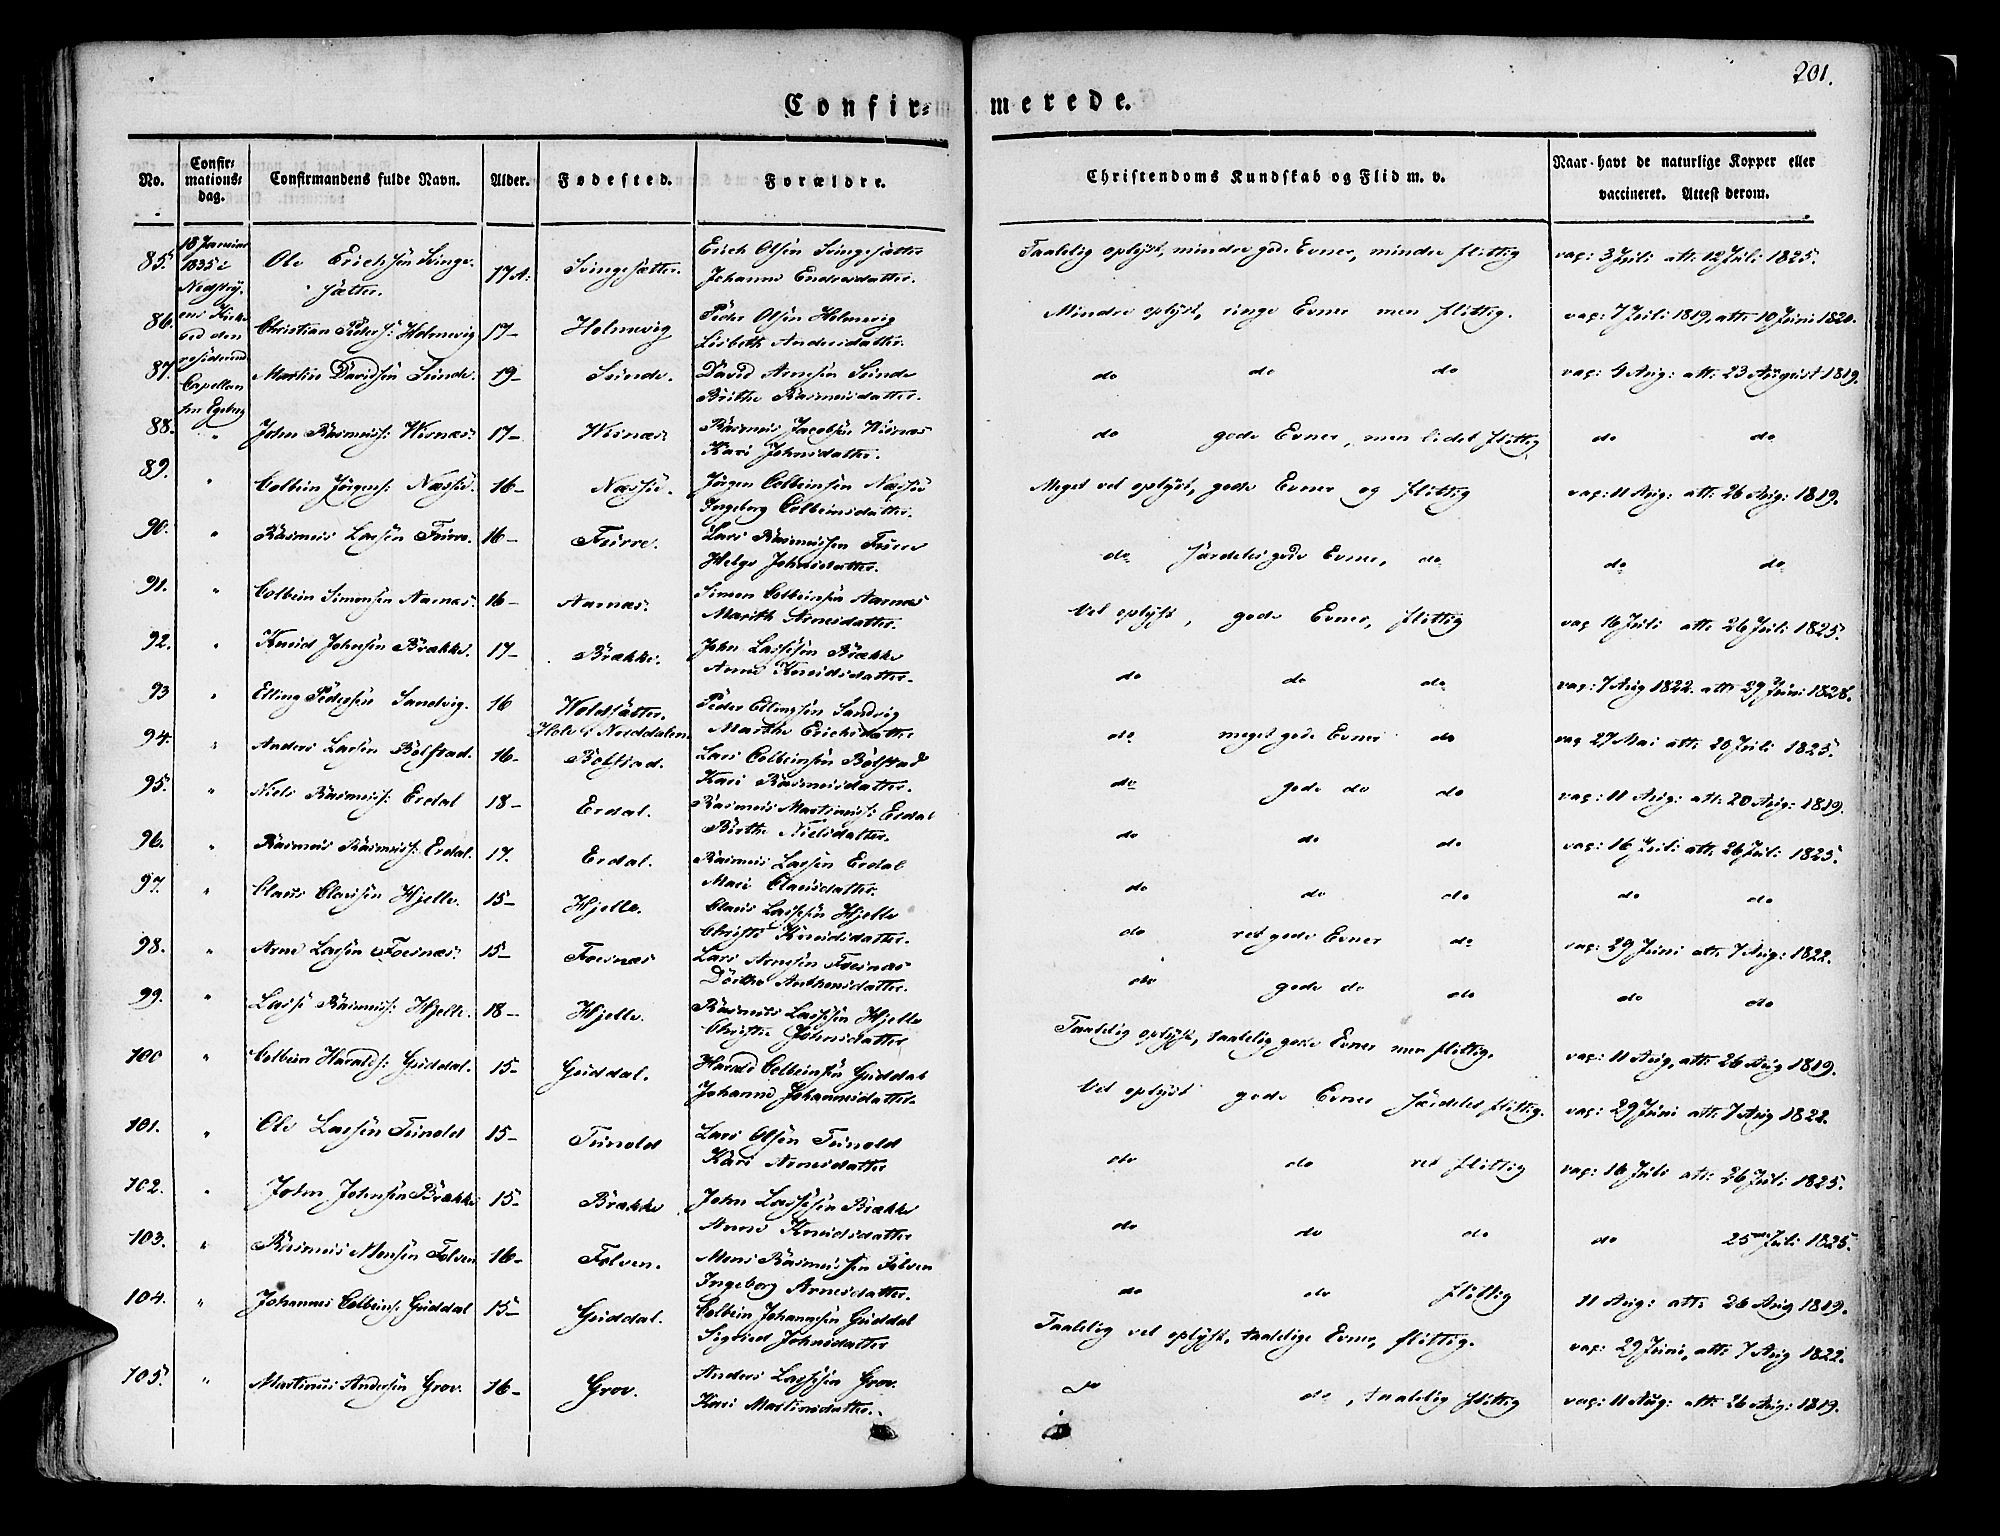 201.
Confir= merede.
No. Confir= mations= dag. Confirmandens fulde Navn. Alder. Fødested. Forældre. Christendoms Kundskab og Flid m. v. Naar havt de naturlige Kopper eller vaccineret. Attest derom.
18 Januar 1835 i
Kirke ved den residerend Capellan Hr Egeberg
85. Ole Erichsen Svinge= sætter. 17 A: Svingesætter. Erich Olsen Svingesætter Johanne Endresdatter. Taalelig oplyst, mindre gode Evner, mindre flittig vac: 3 Juli att: 12 Juli 1825.
86. Christian Peders: Holmvig 17- Holmvig Peder Olsen Holmvig Lisbeth Andersdatter. Mindre oplyst, ringe Evner men flittig. vac: 7 Juli 1819, att: 10 Juni 1820.
87. Martin Davidsen Sunde. 19- Sunde. David Arnesen Sunde Brithe Rasmusdatter. do do do vac: 4 Aug: att: 23 August 1819.
88. " John Rasmuss: Wisnæs 17- Wisnæs Rasmus Jacobsen Wisnæs Kari Johnsdatter. do gode Evner, men lidet flittig do do
89. " Colbein Jørgens: Næsse. 16- Næsse. Jørgen Colbeinsen Næsse Ingeborg Colbeinsdatter. Meget vel oplyst, gode Evner og flittig vac: 11 Aug: att: 26 Aug: 1819.
90. " Rasmus Larsen Furre. 16- Furre. Lars Rasmussen Furre Helge Johnsdatter. do særdeles gode Evner, do do do
91. " Colbein Simonsen Aarnæs. 16- Aarnæs. Simon Colbeinsen Aarnæs Marith Arnesdatter. Vel oplyst, gode Evner, flittig vac 16 Juli att: 26 Juli 1825.
92. " Knud Johnsen Brække. 17- Brække. John Lassesen Brække Anne Knudsdatter. do do do vac: 7 Aug 1822. att: 29 Juni 1828.
93 " Elling Pedersen Sandvig. 16 Woldsætter. Hole i Norddalen Peder Ellingsen Sandvig Marthe Erichsdatter do meget gode Evner do vac 27 Mai att: 20 Juli 1825.
94. " Anders Larsen Bølstad. 16- Bølstad. Lars Colbeinsen Bølstad Kari Rasmusdatter. do gode do do vac: 11 Aug: att: 20 Aug: 1819.
95. " Niels Rasmuss: Erdal 18- Erdal. Rasmus Martinuss: Erdal Birthe Nielsdatter. do do do vac: 16 Juli att: 26 Juli: 1825.
96. " Rasmus Rasmuss: Erdal. 17. Erdal. Rasmus Larsen Erdal Mari Clausdatter. do do do do do
97. " Claus Claussen Hjelle. 15- Hjelle. Claus Lassesen Hjelle Christi Knudsdatter. do ret gode Evner do vac: 29 Juni att: 7 Aug: 1822.
98. " Arne Larsen Foesnæs. 15- Foesnæs Lars Arnesen Foesnæs Dorthe Anthonsdatter. do gode do do do do
99. " Lasse Rasmuss: Hjelle. 18- Hjelle. Rasmus Lassesen Hjelle Christie Johnsdatter Taalelig oplyst, taalelig gode Evner mer flittig. vac: 11 Aug, att: 26 Aug 1819.
100 " Colbein Haralds: Guddal. 15- Guddal. Harald Colbeinsen Guddal Johanne Johannesdatter. Vel oplyst gode Evner særdeles flittig. vac: 29 Juni att: 7 Aug 1822.
101. " Ole Larsen Tunold 15- Tunold Lars Olsen Tunold Kari Arnesdatter do do ret flittig vac: 16 Juli att: 26 Juli: 1825.
102. " John Johnsen Brække 15- Brække John Lassesen Brække Anne Knudsdatter do do do do 25 Juli 1825.
103. " Rasmus Monsen Folven 16- Folven. Mons Rasmussen Folven Ingeborg Arnesdatter. do do flittig 11 Aug: att: 26 Aug 1819.
104. " Johannes Colbeins: Guddal 15- Guddal. Colbein Johannsen Guddal Sigried Johnsdatter Taalelig vel oplyst, taalelige Evner, flittig. vac: 29 Juni, att: 7 Aug 1822.
105. " Martinus Andersen Grov. 16- Grov. Anders Lassesen Grov. Kari Martinsdatter. do do, taalelig flittig vac: 11 Aug: att: 26 Aug: 1819.